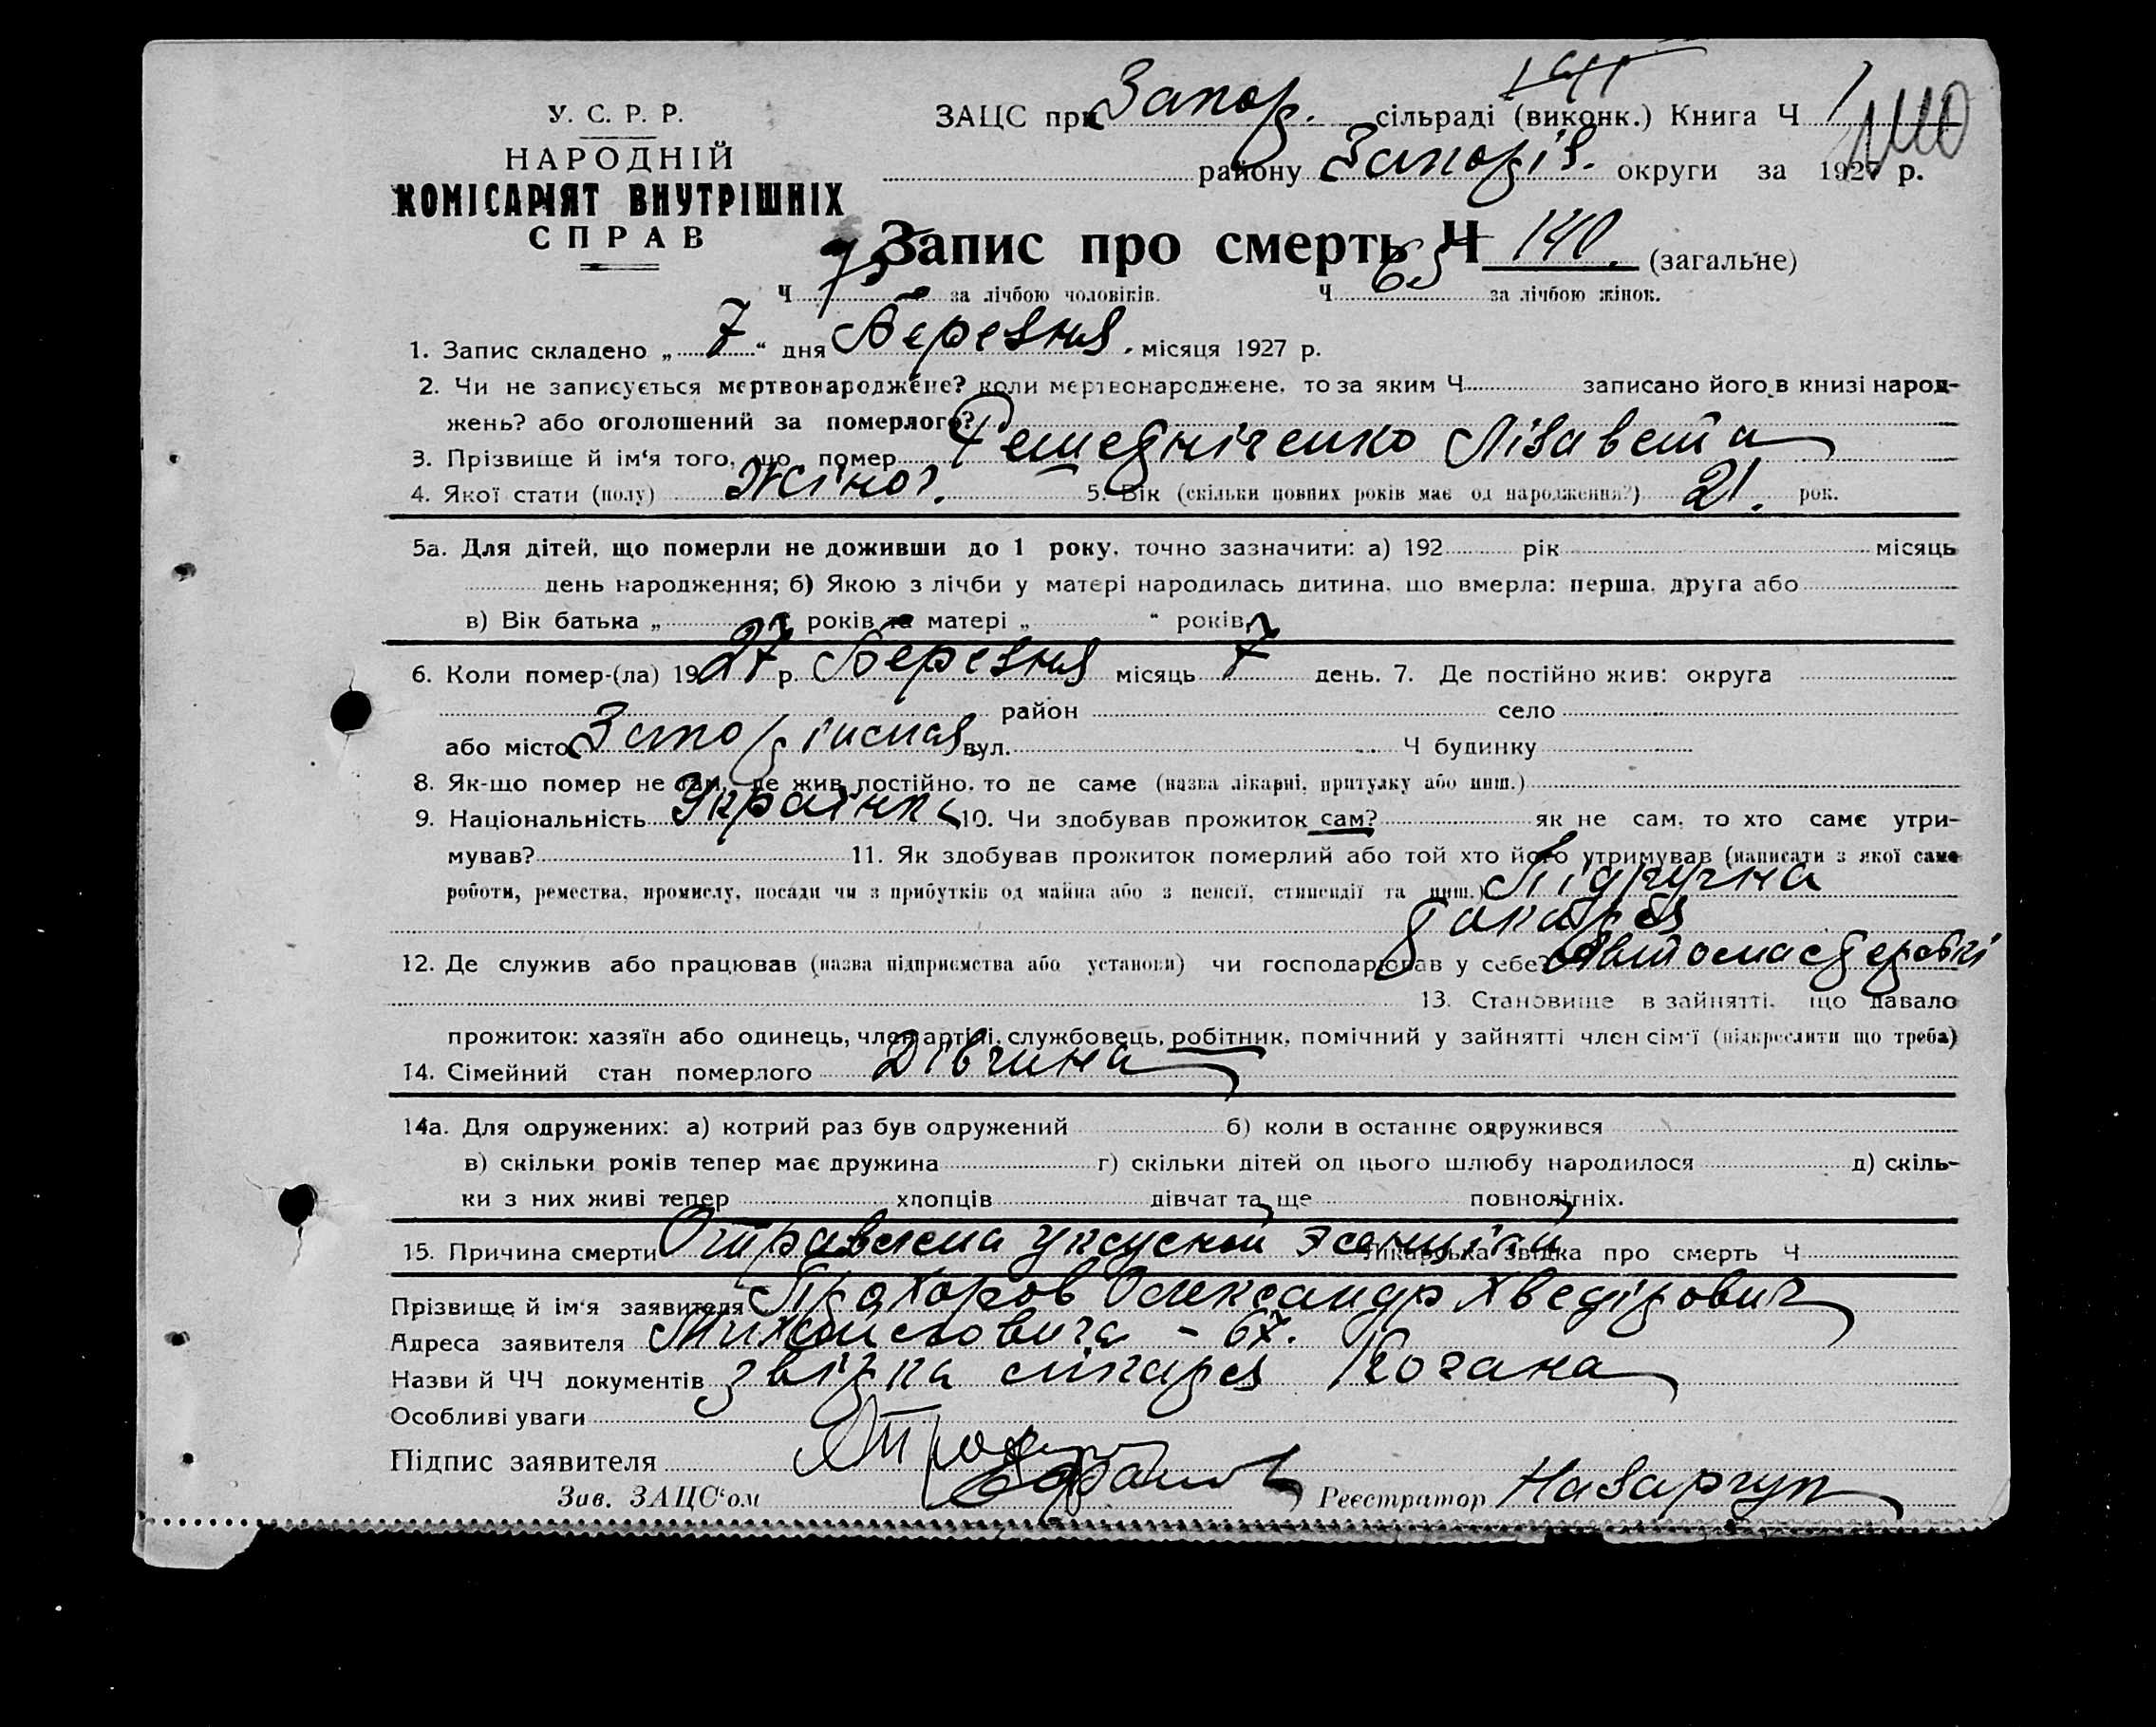 У. С. Р. Р.
НАРОДНІЙ
КОМІСАРІЯТ ВНУТРІШНІХ
СПРАВ
ЗАЦС при Запор. сільраді (виконк.) Книга Ч 1
району Запоріз. округи за 1927 р.
Запис про смерть Ч 140. (загальне)
Ч 75 за лічбою чоловіків. Ч 65 за лічбою жінок.
1. Запис складено „ 7 “ дня Березня місяця 1927 р.
2. Чи не записується мертвонароджене? коли мертвонароджене, то за яким Ч записано його в книзі народ-
жень? або оголошений за померлого?
3. Прізвище й ім‘я того, що помер Решедніченко Лізавета
4. Якої статі (полу) Жіної. 5. Вік (скільки повних років має од народження?) 21. рок.
5а. Для дітей, що померли не доживши до 1 року, точно зазначити: а) 192 рік місяць
день народження; б) Якою з лічби у матері народилась дитина, що вмерла: перша, друга або
в) Вік батька „ років та матері „ “ років
6. Коли помер-(ла) 1927 р. Березня місяць 7 день. 7. Де постійно жив: округа
район село
або місто Запоріжжя вул. Ч будинку
8. Як-що помер не там, де жив постійно, то де саме (назва лікарні, притулку або инш.)
9. Національність Українка 10. Чи здобував прожиток сам? як не сам, то хто саме утри-
мував? 11. Як здобував прожиток померлий або той хто його утримував (написати з якої саме
роботи, ремества, промислу, посади чи з прибутків од майна або з пенсії, стипендії та инш.) Підручна
токаря
12. Де служив або працював (назва підприємства або установи) чи господарював у себе? Автомастерські
13. Становище в зайнятті, що давало
прожиток: хазяїн або одинець, член артілі, службовець, робітник, помічний у зайнятті член сім‘ї (підкреслити що треба)
14. Сімейний стан померлого Дівчина
14а. Для одружених: а) котрий раз був одружений б) коли в останнє одружився
в) скільки років тепер має дружина г) скільки дітей од цього шлюбу народилося д) скіль-
ки з них живі тепер хлопців дівчат та ще повнолітніх.
15. Причина смерти Отравлена уксусной эсенцией Лікарська звідка про смерть Ч
Прізвище й ім‘я заявителя Прохоров Олександр Хведірович
Адреса заявителя Михайловича - 67.
Назви й ЧЧ документів звідка лікаря Когана
Особливі уваги
Підпис заявителя
Зав. ЗАЦС‘ом Реєстратор Назарчук